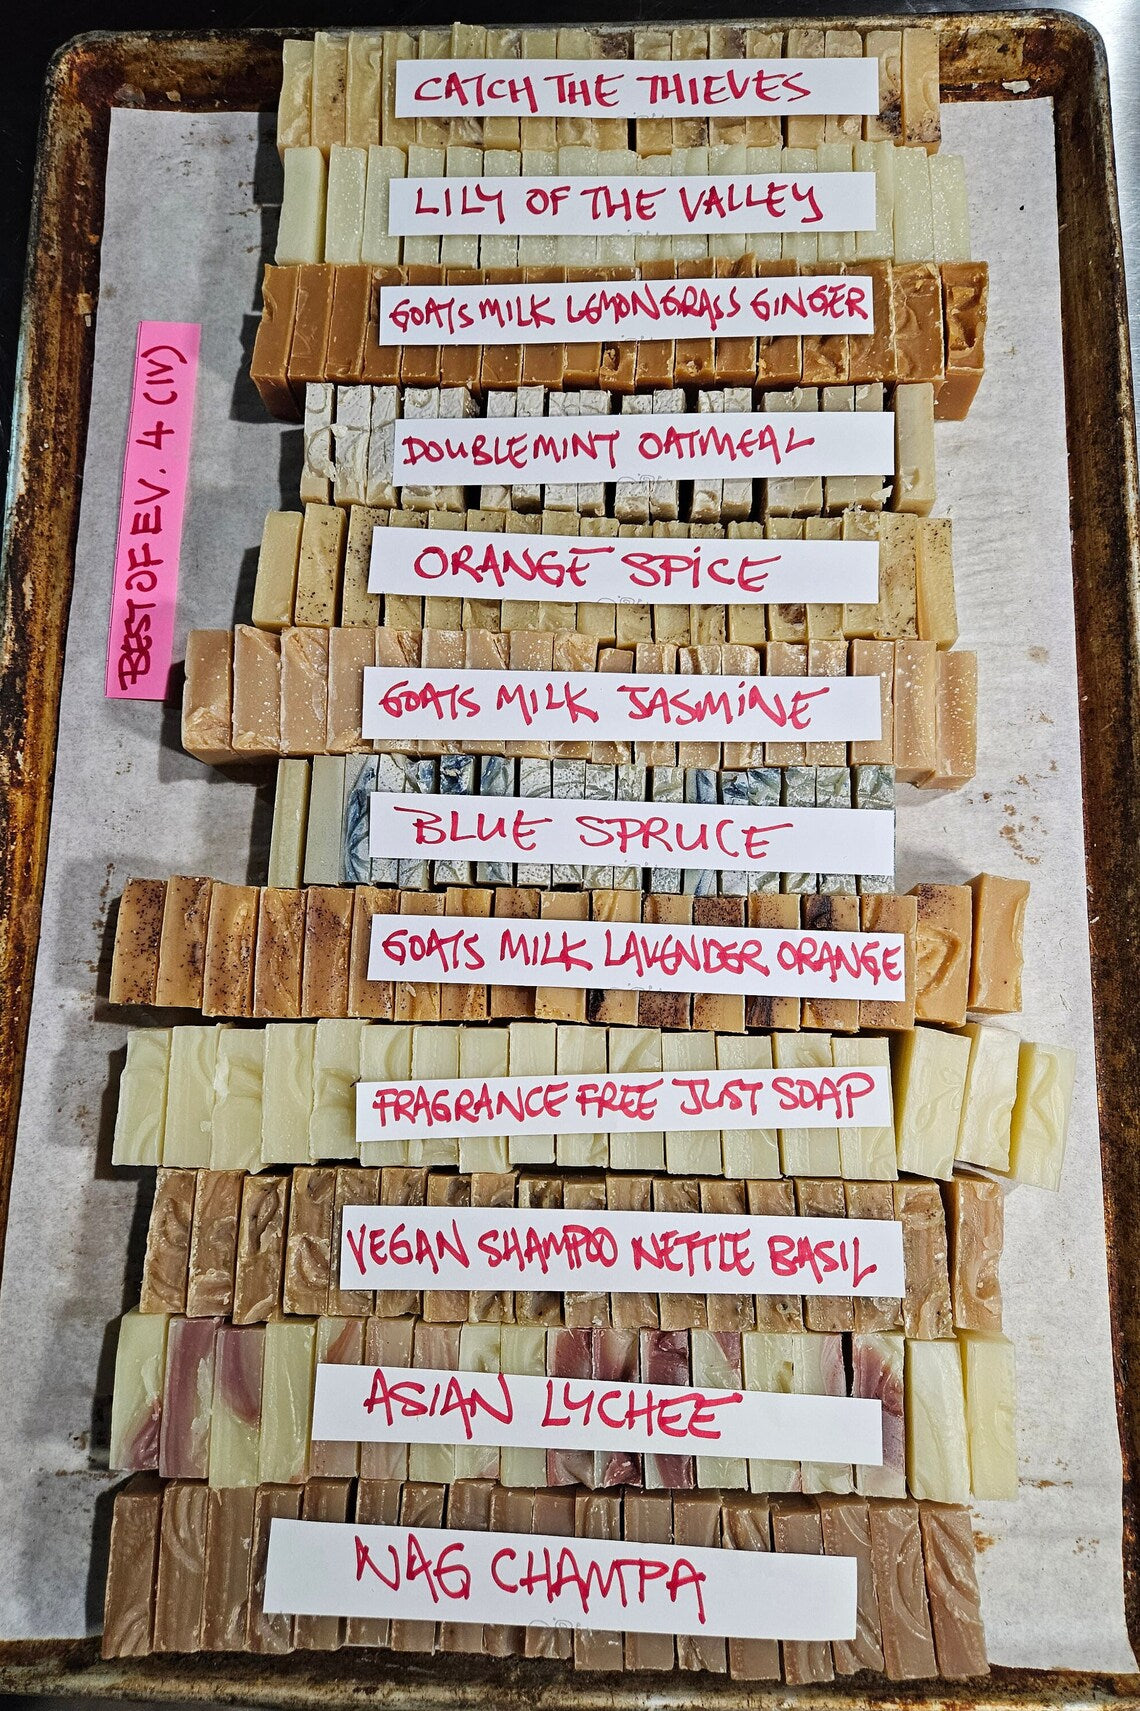 CATCH THE THIEVES
LILY OF THE VALLEY
GOATS MILK LEMONGRASS GINGER
DOUBLEMINT OATMEAL
BEST OF EV. 4 (IV)
ORANGE SPICE
GOATS MILK JASMINE
BLUE SPRUCE
GOATS MILK LAVENDER ORANGE
FRAGRANCE FREE JUST SOAP
VEGAN SHAMPOO NETTLE BASIL
ASIAN LYCHEE
NAG CHAMPA